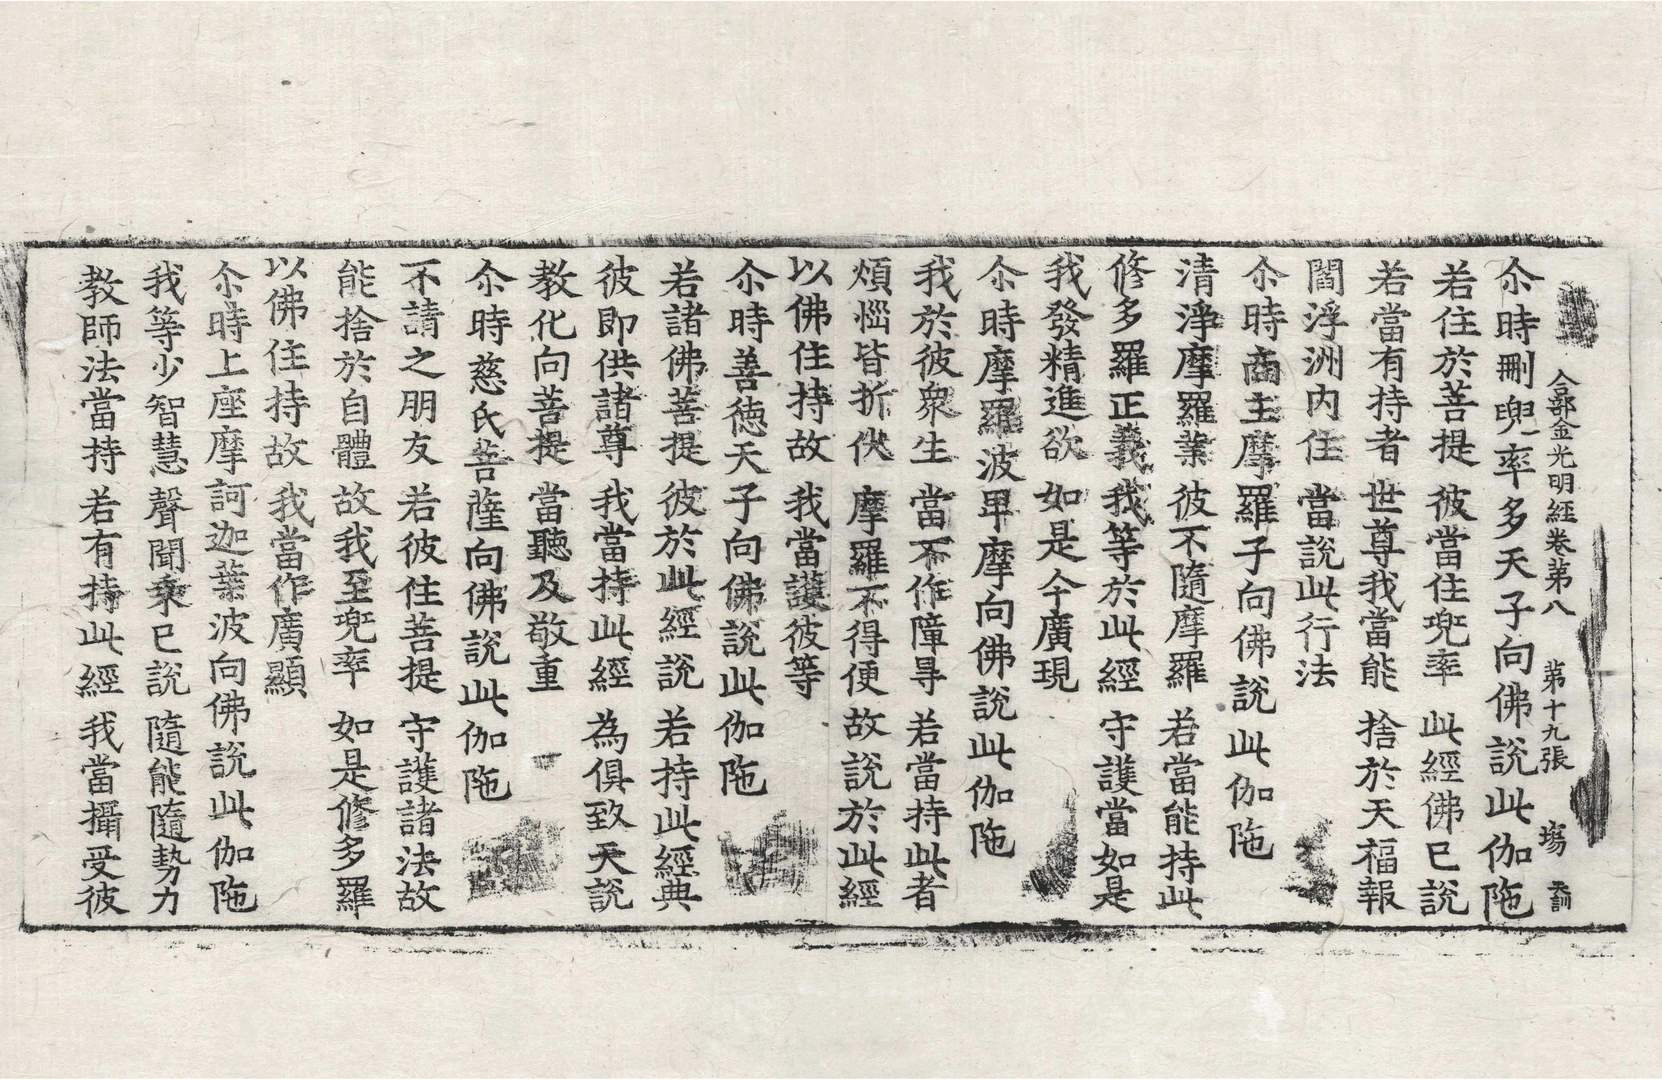 合部金光明經卷第八 第十九張 場 天訓
尒時刪兜率多天子向佛說此伽陁
若住於菩提 彼當住兜率 此經佛已說
若當有持者 世尊我當能 捨於天福報
閻浮洲內住 當說此行法
尒時商主摩羅子向佛說此伽陁
清淨摩羅業 彼不隨摩羅 若當能持此
修多羅正義 我等於此經 守護當如是
我發精進欲 如是今廣現
尒時摩羅波卑摩向佛說此伽陁
我於彼衆生 當不作障㝵 若當持此者
煩惱皆折伏 摩羅不得便 故說於此經
以佛住持故 我當護彼等
尒時善德天子向佛說此伽陁
若諸佛菩提 彼於此經說 若持此經典
彼即供諸尊 我當持此經 為俱致天說
教化向菩提 當聽及敬重
尒時慈氏菩薩向佛說此伽陁
不請之朋友 若彼住菩提 守護諸法故
能捨於自體 故我至兜率 如是修多羅
以佛住持故 我當作廣顯
尒時上座摩訶迦葉波向佛說此伽陁
我等少智慧 聲聞乘已說 隨能隨勢力
教師法當持 若有持此經 我當攝受彼